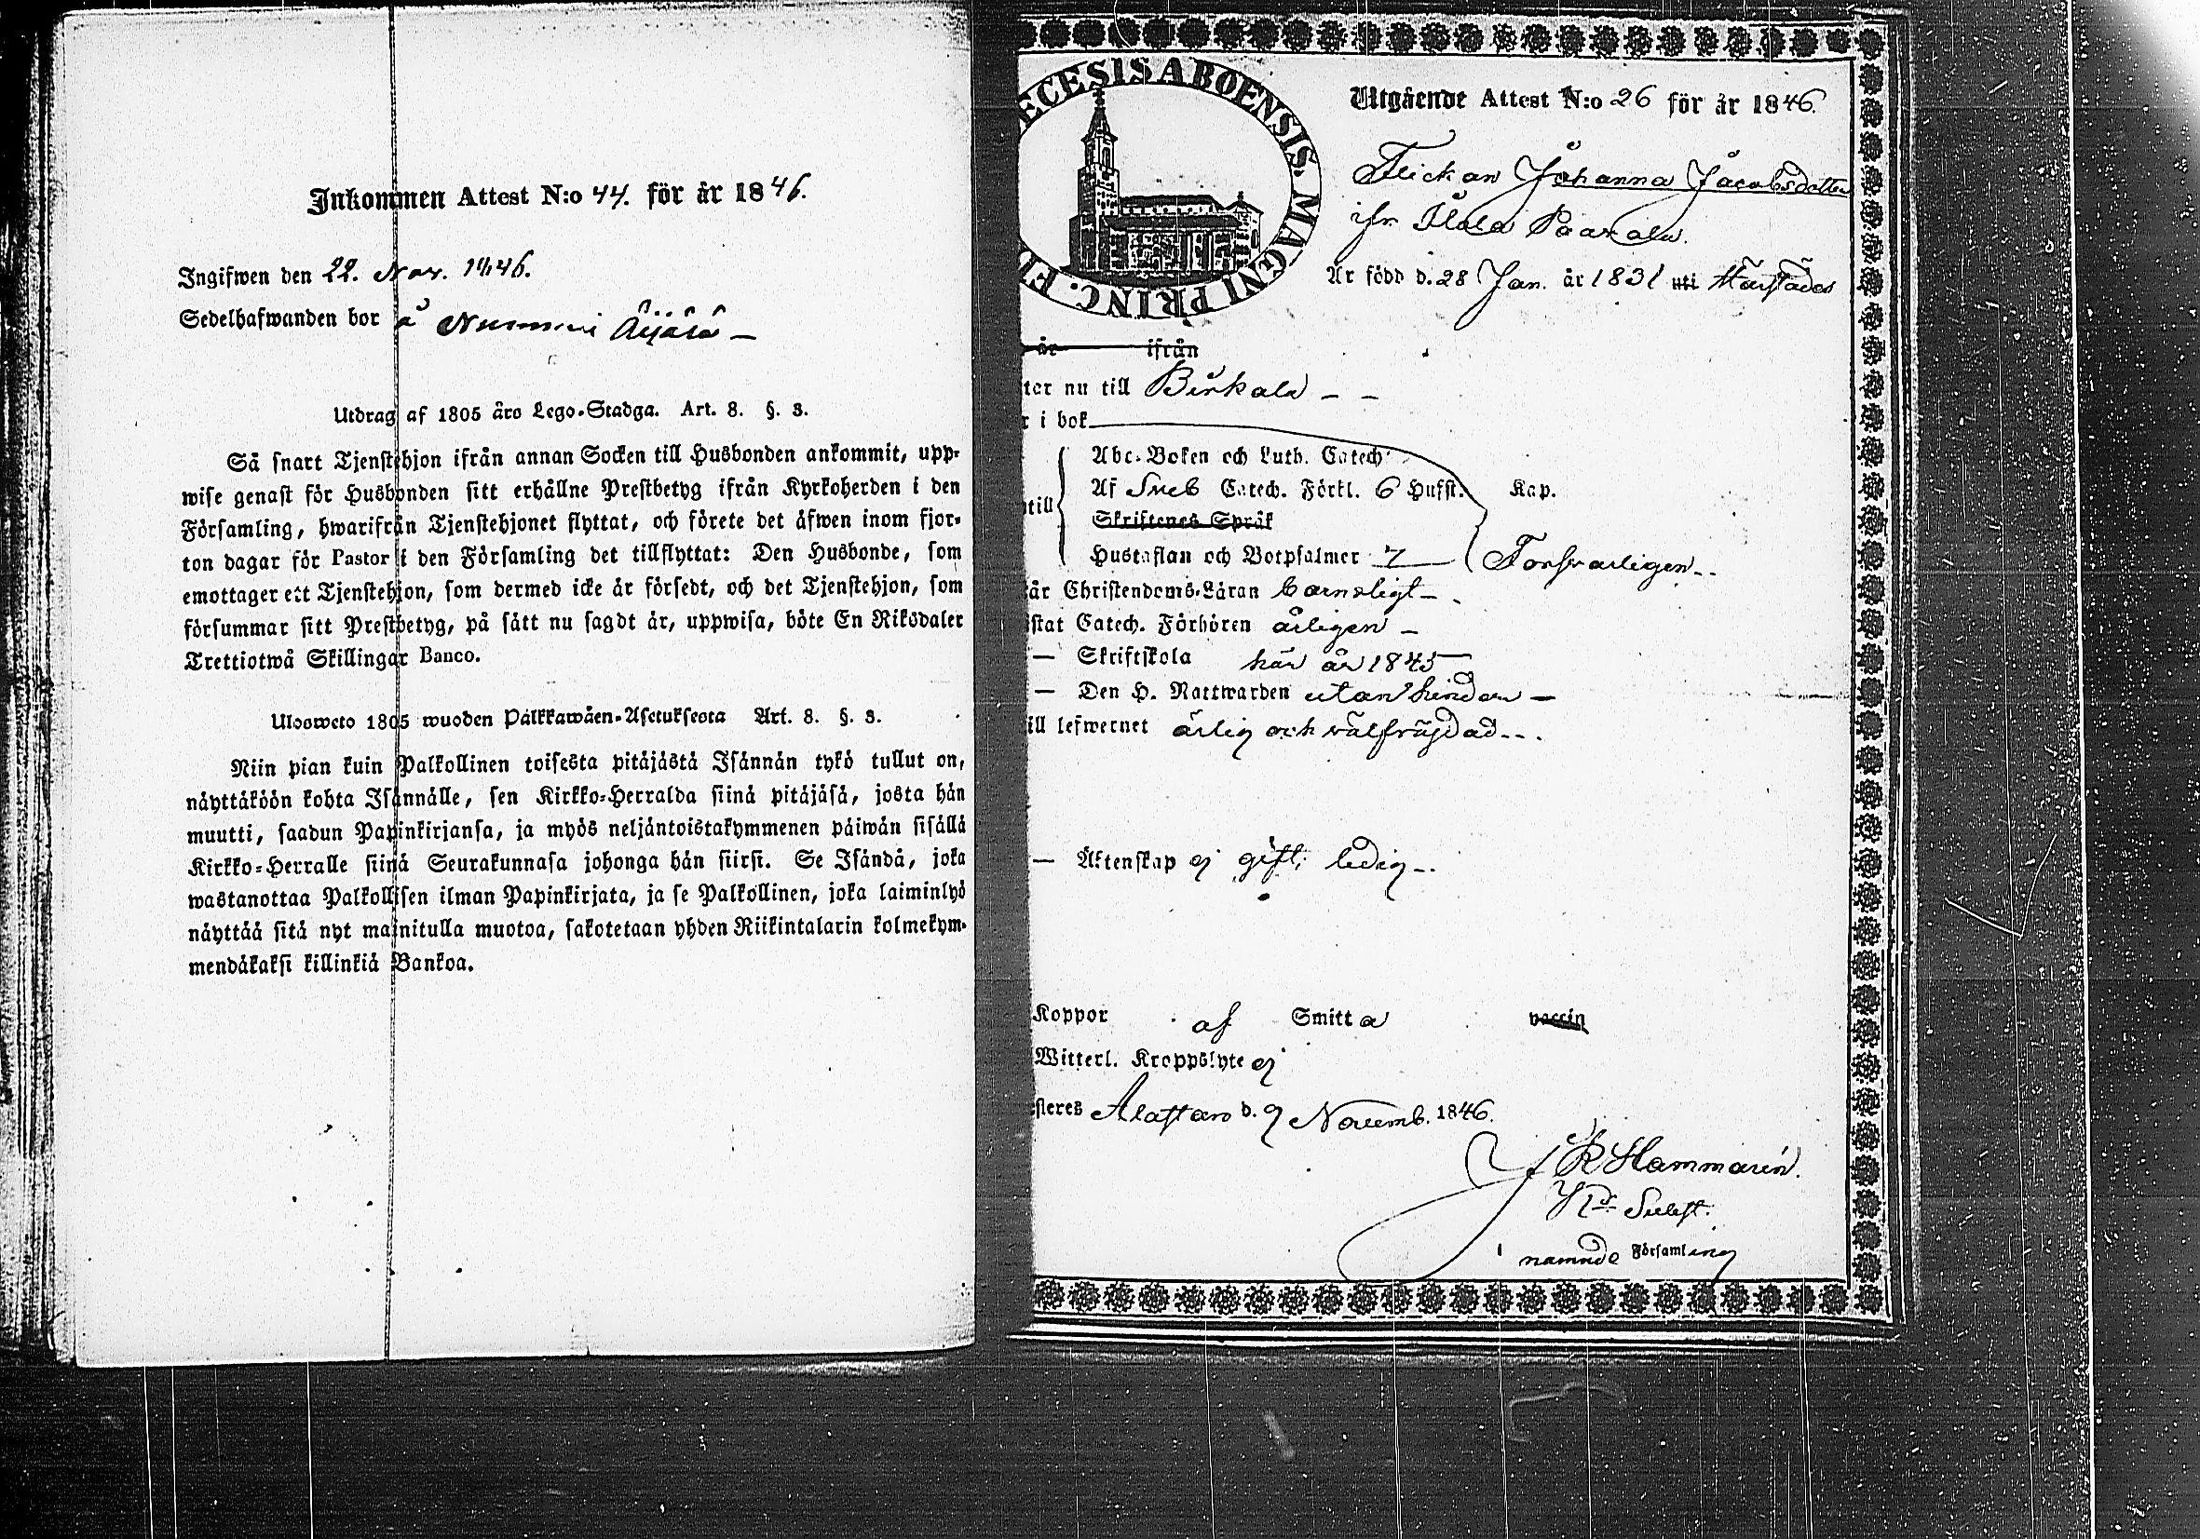 Inkommen Attest N:o 44. för år 1846.
Ingifwen den 22. Nov. 1846.
Sedelhafwanden bor å Nummi Äijälä —
Utdrag af 1805 års Lego-Stadga. Art. 8. §. 3.
Så snart Tjenstehjon ifrån annan Socken till Husbonden ankommit, upp-
wise genast för Husbonden sitt erhållne Prestbetyg ifrån Kyrkoherden i den
Församling, hwarifrån Tjenstehjonet flyttat, och förete det äfwen inom fjor-
ton dagar för Pastor i den Församling det tillflyttat: Den Husbonde, som
emottager ett Tjenstehjon, som dermed icke är försedt, och det Tjenstehjon, som
försummar sitt Prestbetyg, på sätt nu sagdt är, uppwisa, böte En Riksdaler
Trettiotwå Skillingar Banco.
Ulosweto 1805 wuoden Palkkawäen-Asetuksesta Art. 8. §. 3.
Niin pian kuin Palkollinen toisesta pitäjästä Isännän tykö tullut on,
näyttäköön kohta Isännälle, sen Kirkko-Herralda siinä pitäjäsä, josta hän
muutti, saadun Papinkirjansa, ja myös neljäntoistakymmenen päiwän sisällä
Kirkko-Herralle siinä Seurakunnasa johonga hän siirsi. Se Isändä, joka
wastanottaa Palkollisen ilman Papinkirjata, ja se Palkollinen, joka laiminlyö
näyttää sitä nyt mainitulla muotoa, sakotetaan yhden Riikintalarin kolmekym-
mendäkaksi killinkiä Bankoa.
ECESIS ABOENSIS. MAGNI PRINC. F
Utgående Attest N:o 26 för år 1846.
Flickan Johanna Jacobsdotter
ifr. Paarala.
Är född d. 28 Jan. år 1831 uti
år ifrån
ter nu till Birkala – –
r i bok
Abc-Boken och Luth. Catech
Af Sveb Catech. Förkl. 6 Hufst. Kap.
till
Skriftenes Språk
Hustaflan och Botpsalmer 7 Försvarligen..
är Christendoms-Läran barnsligt – .
stat Catech. Förhören årligen –
— Skriftskola här år 1845 —
— Den H. Nattwarden utan hinder —
ill lefwernet ärlig och välfrägdad...
— Äktenskap ej gift; ledig –.
Koppor af Smitta vaccin
Witterl. Kroppslyte ej
steres Alastaro d. 9 Novemb. 1846.
J R Hammarén.
Subst.
i namnde Församling